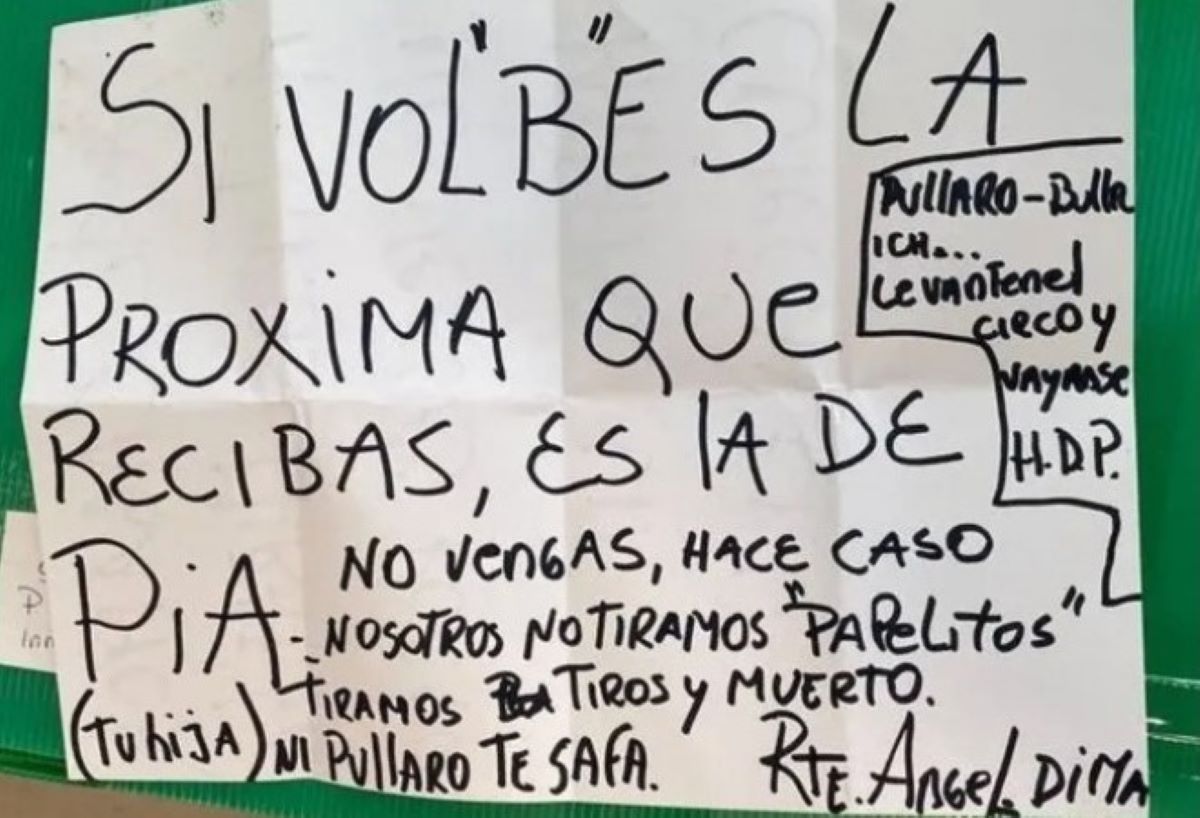 SI VOL"B"ES LA
PROXIMA QUE
RECIBAS, ES lA DE
PiA
(TU hiJA)
NO VengAS, HACE CASO
- NOSOTROS NO TIRAMOS "PAPeLitos"
- TIRAMOS TIROS y MUERTO.
NI PUllARO TE SAFA.
RTE. AngeL DiMA
PUllARO - BUllR
ICH...
LevanTen el
CIRCO y
VAYANSE
H.D.P.